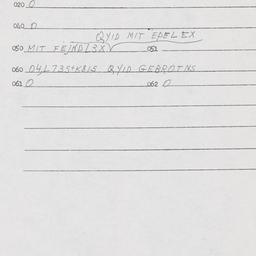 020 0
040 0
QYID MIT EDELEX
050 MIT FE/ND L3X 051
060 D4L735+K815 QYID GEBROTNS
061 0 062 0